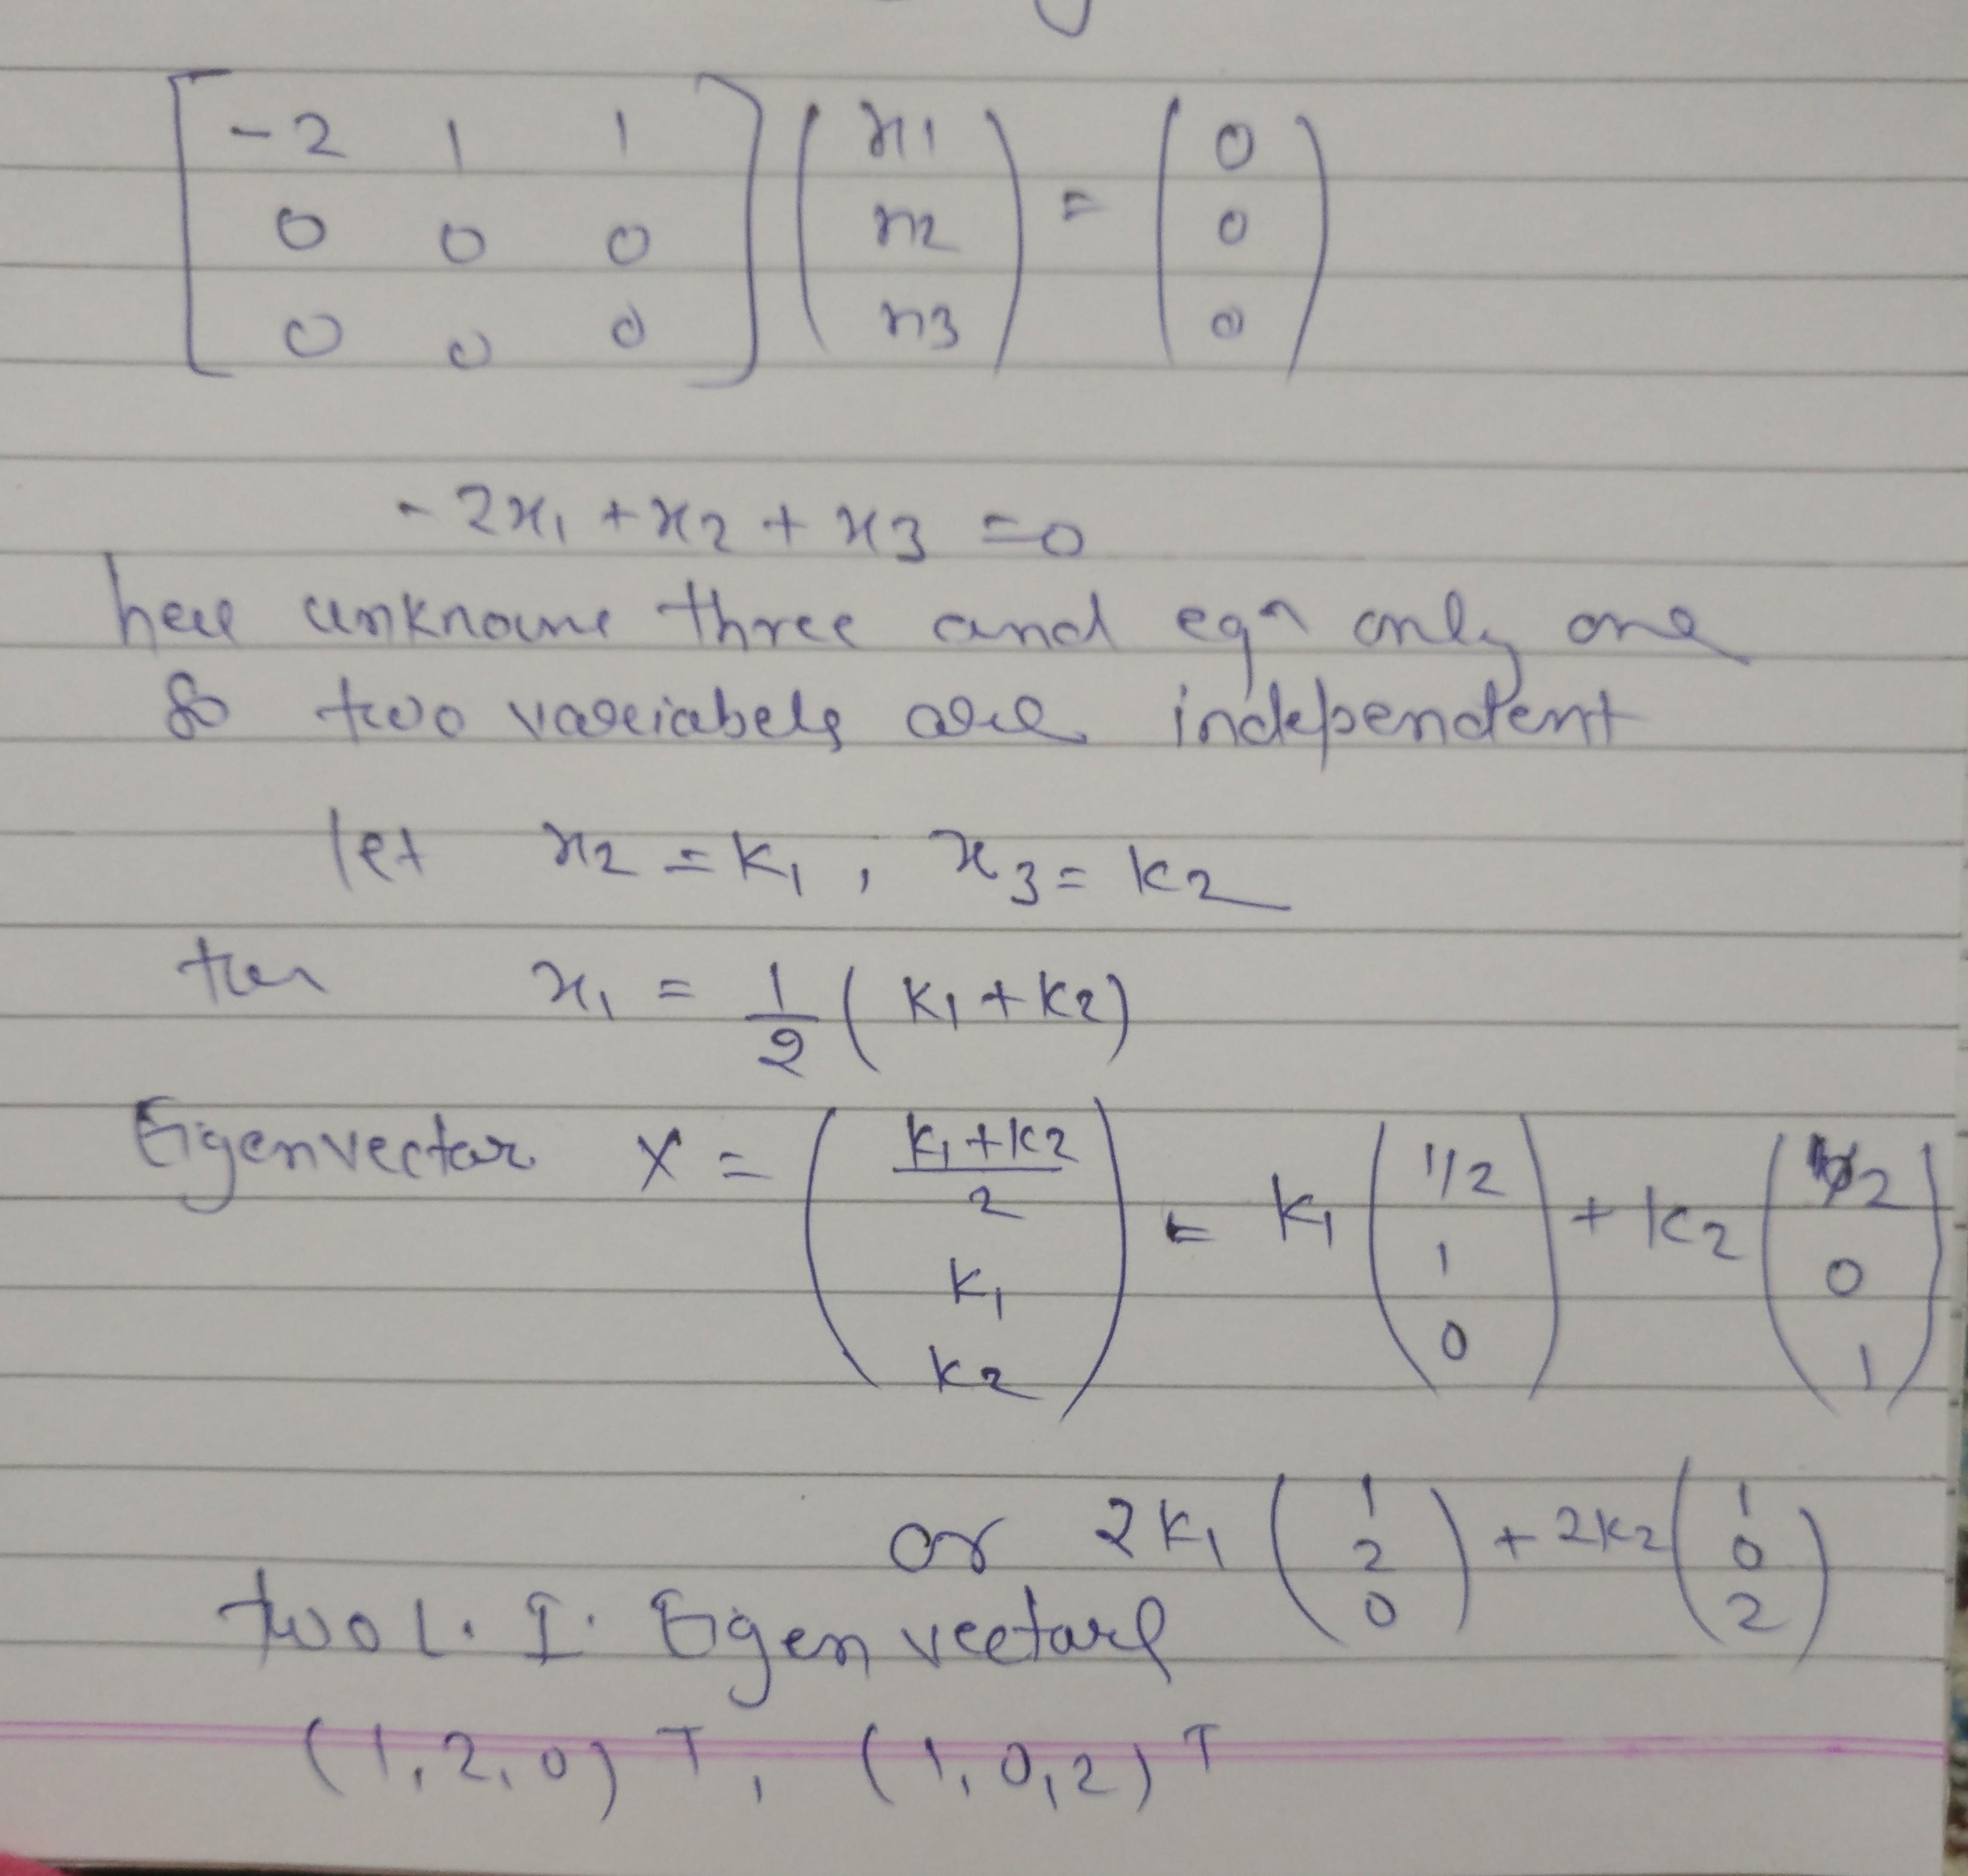 [-2 1 1] (x1) = (0)
[0 0 0] (x2) (0)
[0 0 0] (x3) (0)
-2x1 + x2 + x3 = 0
here unknowne three and eqn only one
so two variabels are independent
let x2 = k1, x3 = k2
then x1 = 1/2 (k1 + k2)
Eigenvector X = ((k1+k2)/2, k1, k2) = k1 (1/2, 1, 0) + k2 (1/2, 0, 1)
or 2k1 (1, 2, 0) + 2k2 (1, 0, 2)
two L. I. Eigen vectors
(1, 2, 0)T, (1, 0, 2)T